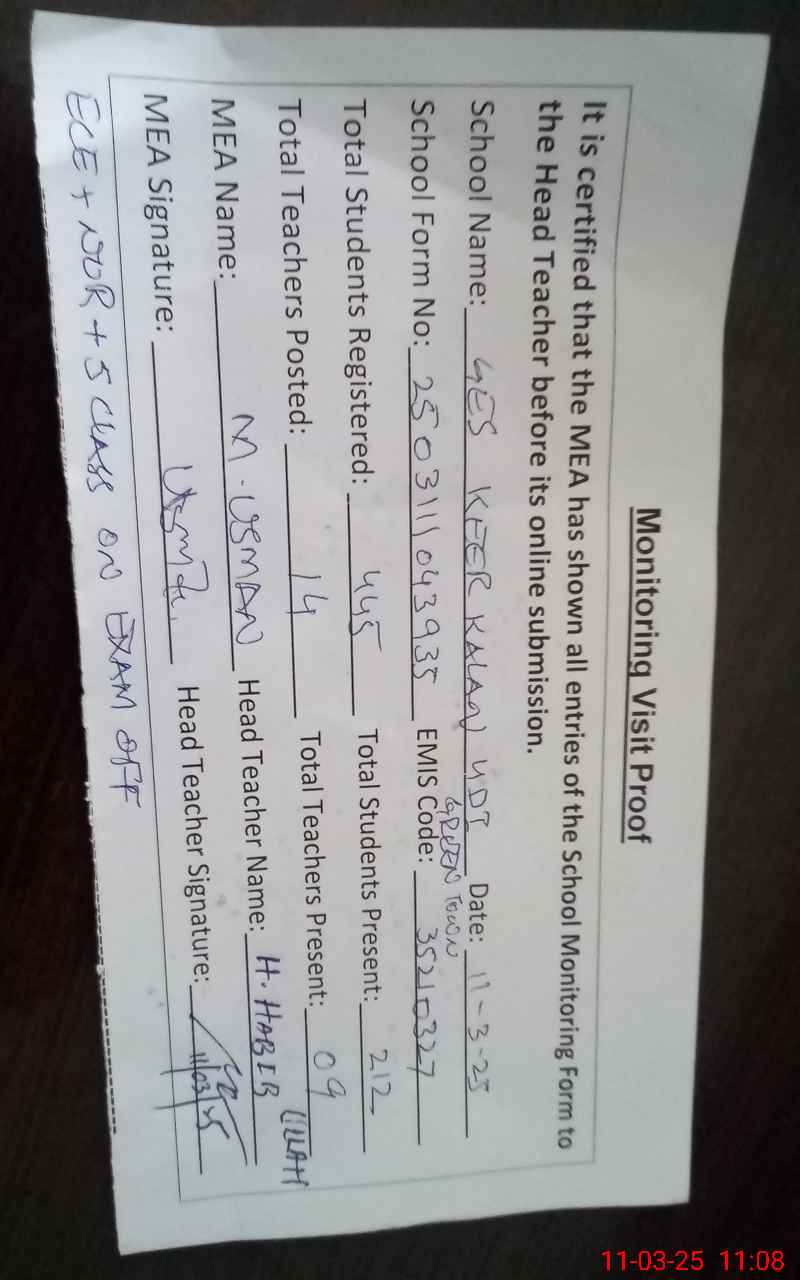 Monitoring Visit Proof
It is certified that the MEA has shown all entries of the School Monitoring Form to
the Head Teacher before its online submission.
School Name: GES KEER KALAN UDI Date: 11-3-25
GREEN TOWN
School Form No: 2503111043935 EMIS Code: 35210327
Total Students Registered: 445 Total Students Present: 212
Total Teachers Posted: 14 Total Teachers Present: 09
MEA Name: M. USMAN Head Teacher Name: H. HABIB ULLAH
MEA Signature: Head Teacher Signature: 11/03/25
ECE + NUR + 5 CLASS ON EXAM OFF
11-03-25 11:08